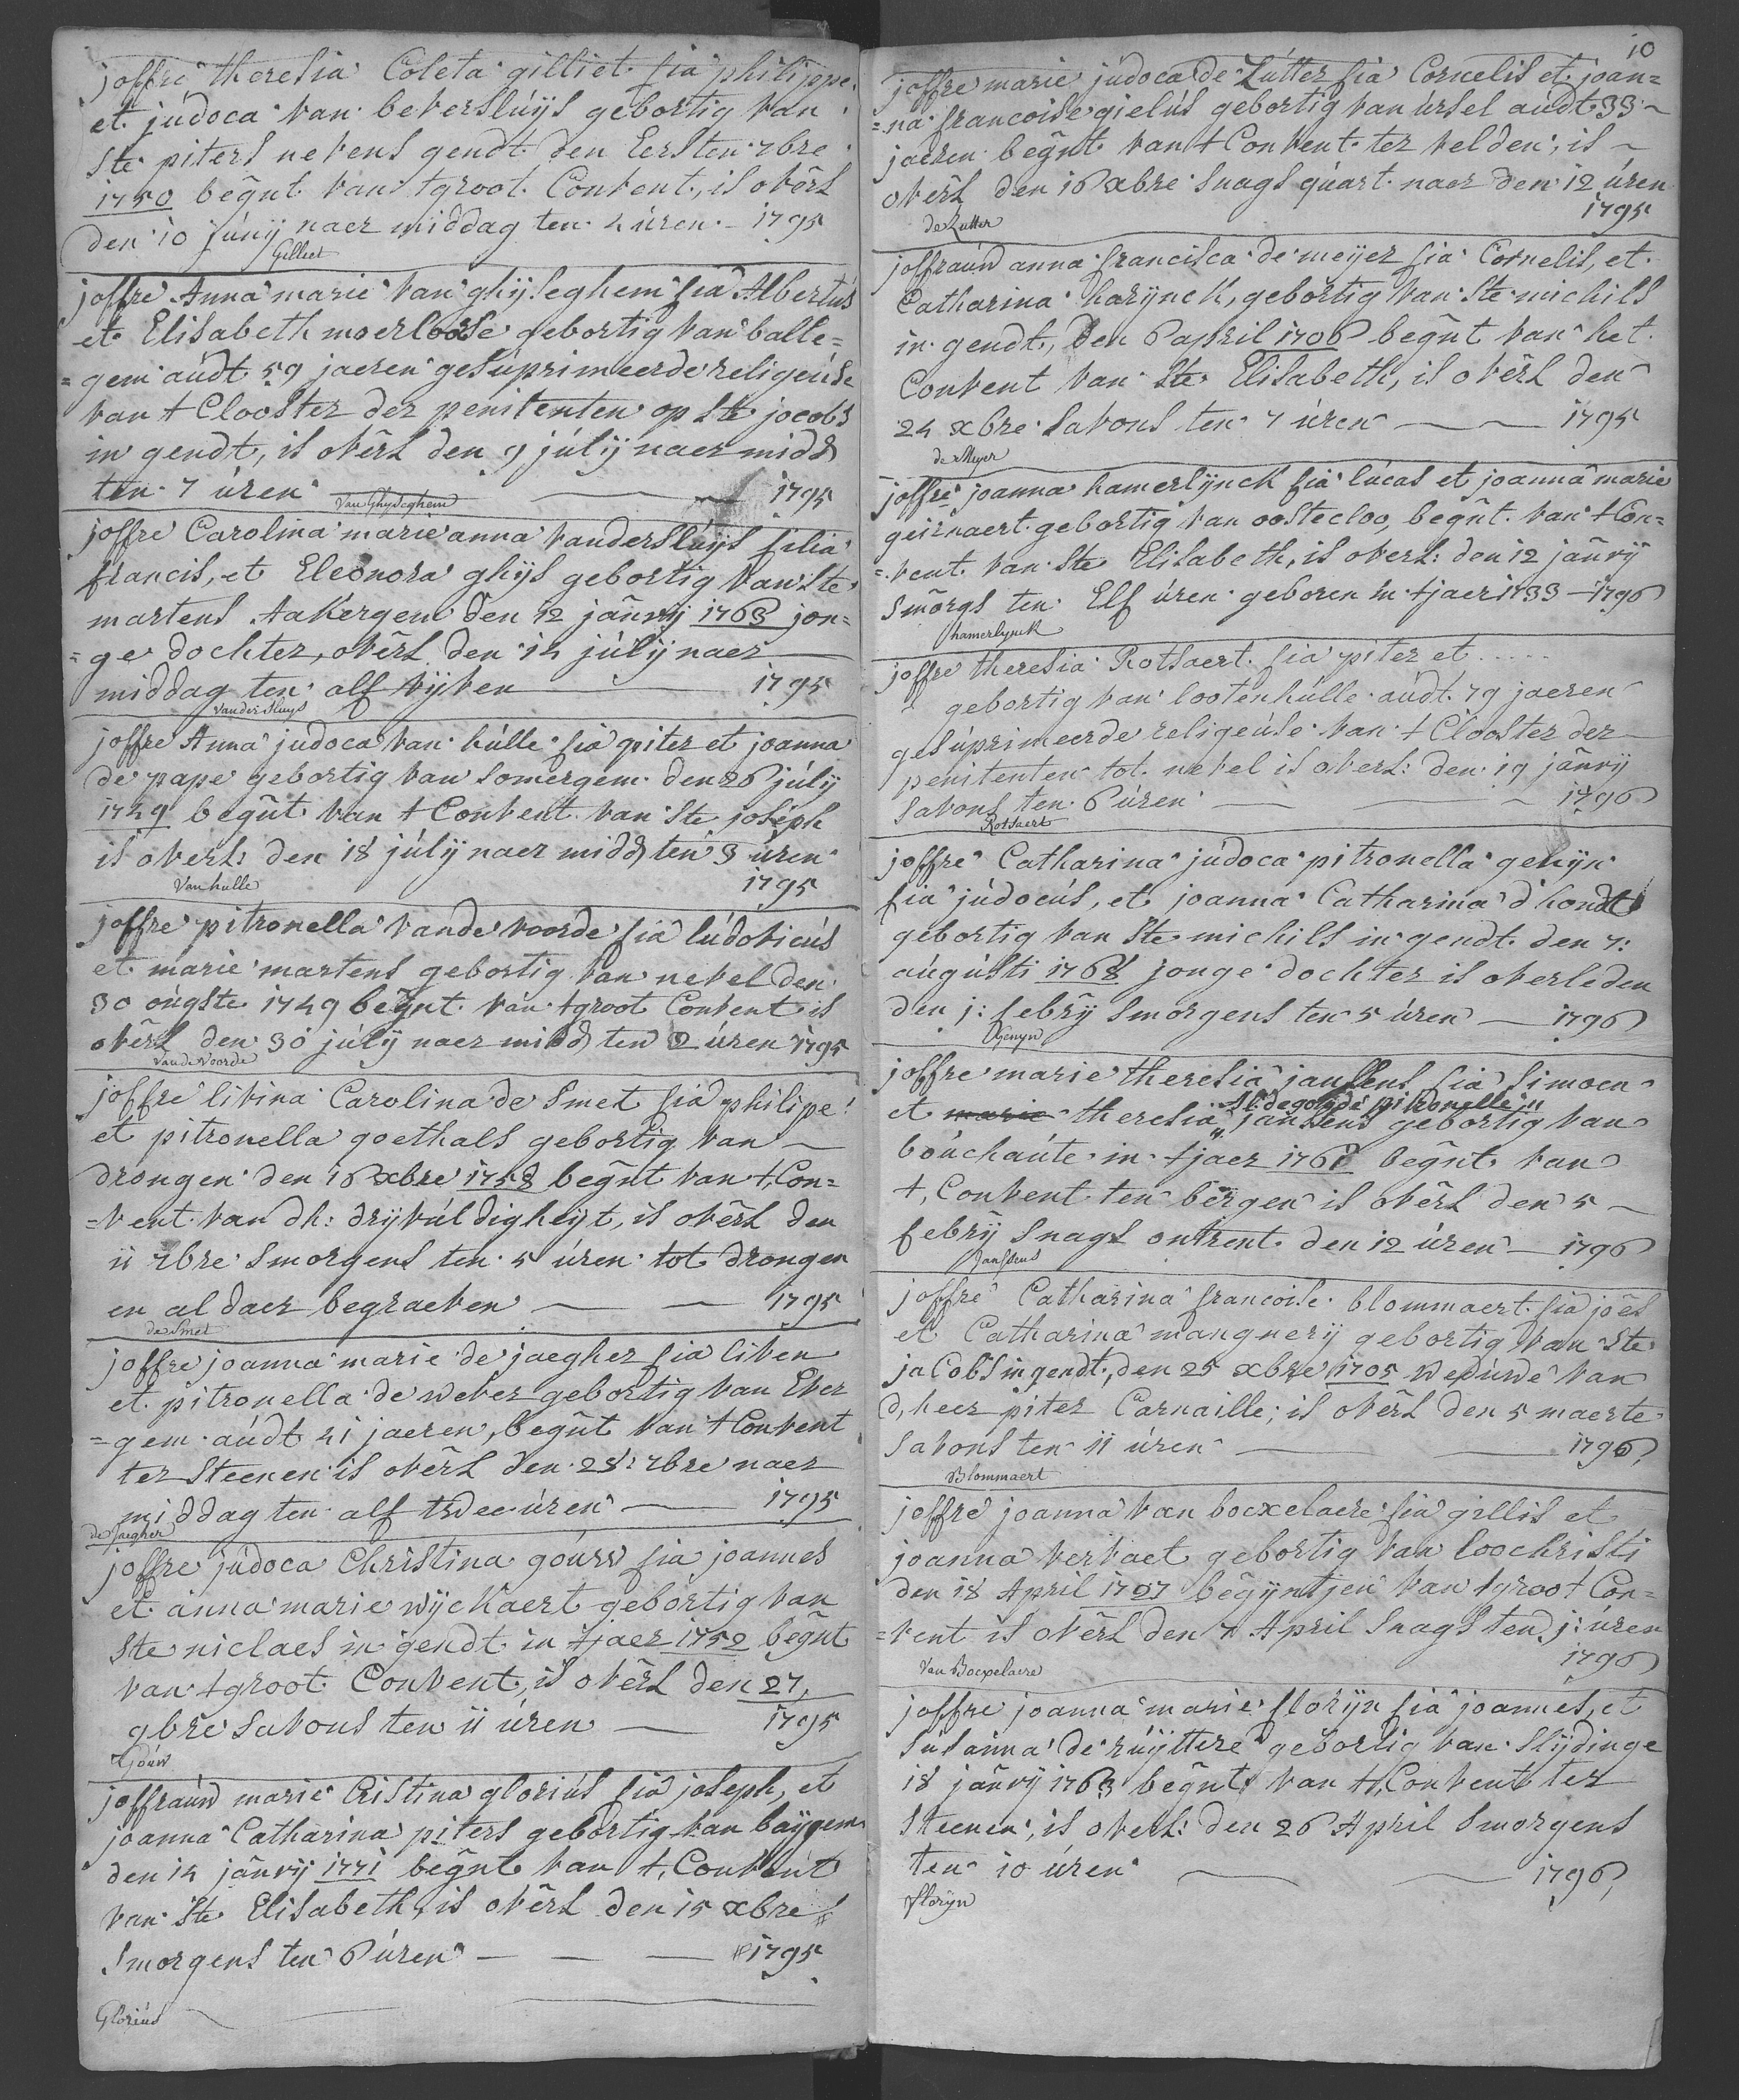 joffre theresia Coleta gilliet fia philippe
et judoca van beversluijs gebortig van
Ste piters nevens gendt den Eersten 7bre
1750 begñt van tgroot Convent, is overl
den 10 junij naer middag ten 4 uren - 1795
Gilliet
joffre Anna marie van ghijseghem fia Albertus
et Elisabeth moerloose gebortig van balle=
=gem audt 59 jaeren gesuprimeerde religeuse
van t Clooster der penitenten op Ste jocobs
in gendt, is overl den 9 julij naer midd
ten 7 uren 1795
Van Ghyseghem
joffre Carolina marie anna vandersluijs filia
francis, et Eleonora ghijs gebortig van Ste
martens Aakergem den 12 janrij 1763 jon=
=ge dochter, overl den 14 julij naer
middag ten alf vijven 1795
Vander Sluys
joffre Anna judoca van hulle fia piter et joanna
de pape gebortig van somergem den 26 julij
1749 begñt van t Convent van Ste joseph
is overl: den 18 julij naer midd ten 3 uren
1795
Van hulle
joffre pitronella vande voorde fia ludovicus
et marie martens gebortig van nevel den
30 ougste 1749 begñt van tgroot Convent is
overl den 30 julij naer midd ten 2 uren 1795
Vande Voorde
joffre livina Carolina de Smet fia philipe
et pitronella goethals gebortig van
drongen den 16 xbre 1758 begñt van t, Con=
=vent van dh: drijvuldigheijt, is overl den
11 7bre smorgens ten 5 uren tot drongen
en aldaer begraeven 1795
de Smet
joffre joanna marie de jaegher fia liven
et pitronella de wever gebortig van Ever
=gem audt 41 jaeren, begñt van t Convent
ter Steenen is overl den 28: 7bre naer
middag ten alf twee uren 1795
de Jaegher
joffre judoca Christina gouw fia joannes
et anna marie wijckaert gebortig van
Ste niclaes in gendt in tjaer 1752 begñt
van tgroot Convent, is overl den 27,
9bre savons ten 11 uren 1795
Gouw
joffrauw marie Cistina glorius fia joseph, et
joanna Catharina piters gebortig van baijgem
den 14 janrij 1771 begñt van t, Convent
van Ste Elisabeth, is overl den 15 xbre
smorgens ten 6 uren 1795
Glorius
10
joffre marie judoca de Zutter fia Cornelis et joan=
=na francoise gielus gebortig van ursel audt 33
jaeren begñt van t Convent ter velden, is
overl den 16 xbre snags quart naer den 12 uren
1795
de Zutter
joffrauw anna francisca de meijer fia Cornelis, et
Catharina harijnck, gebortig van Ste michils
in gendt, den 6 april 1706 begñt van het
Convent van Ste Elisabeth, is overl den
24 xbre savons ten 7 uren 1795
de Meyer
joffre joanna hamerlijnck fia lucas et joanna marie
geirnaert gebortig van oostecloo, begñt van t Con=
=vent van Ste Elisabeth, is overl: den 12 janrij
smorgs ten Elf uren geboren in tjaer 1733 - 1796
hamerlynck
joffre theresia Rotsaert fia piter et .....
gebortig van lootenhulle audt 79 jaeren
gesuprimeerde religeuse van t Clooster der
penitenten tot nevel is overl: den 19 janrij
savons ten 6 uren 1796
Rotsaert
joffre Catharina judoca pitronella genijn
fia judocus, et joanna Catharina d'hondt
gebortig van Ste michils in gendt den 7:
augusti 1768 jonge dochter is overleden
den j: febrij smorgens ten 5 uren 1796
Genyn
joffre marie theresia janssens fia simoen
Aldegonde pitronelle
et marie theresia janssens gebortig van
bouchaute in tjaer 1761 begñt van
t, Convent ten bergen is overl den 5
febrij snags ontrent den 12 uren 1796
Janssens
joffre Catharina francoise blommaert fia joes
et Catharina mangnerij gebortig van Ste
jacobs in gendt, den 25 xbre 1705 weduwe van
d, heer piter Carnaille, is overl den 5 maerte
savons ten 11 uren 1796
Blommaert
joffre joanna van bocxelaere fia gillis et
joanna vervaet gebortig van loochristi
den 18 April 1727 begijntjen van tgroot Con=
=vent is overl den 7 April snags ten j: uren
1796
Van Bocxelaere
joffre joanna marie florijn fia joannes, et
susanna de ruijttere gebortig van Slijdinge
18 janrij 1763 begñt van t, Convent ter
Steenen, is overl: den 26 April smorgens
ten 10 uren 1796
Floryn